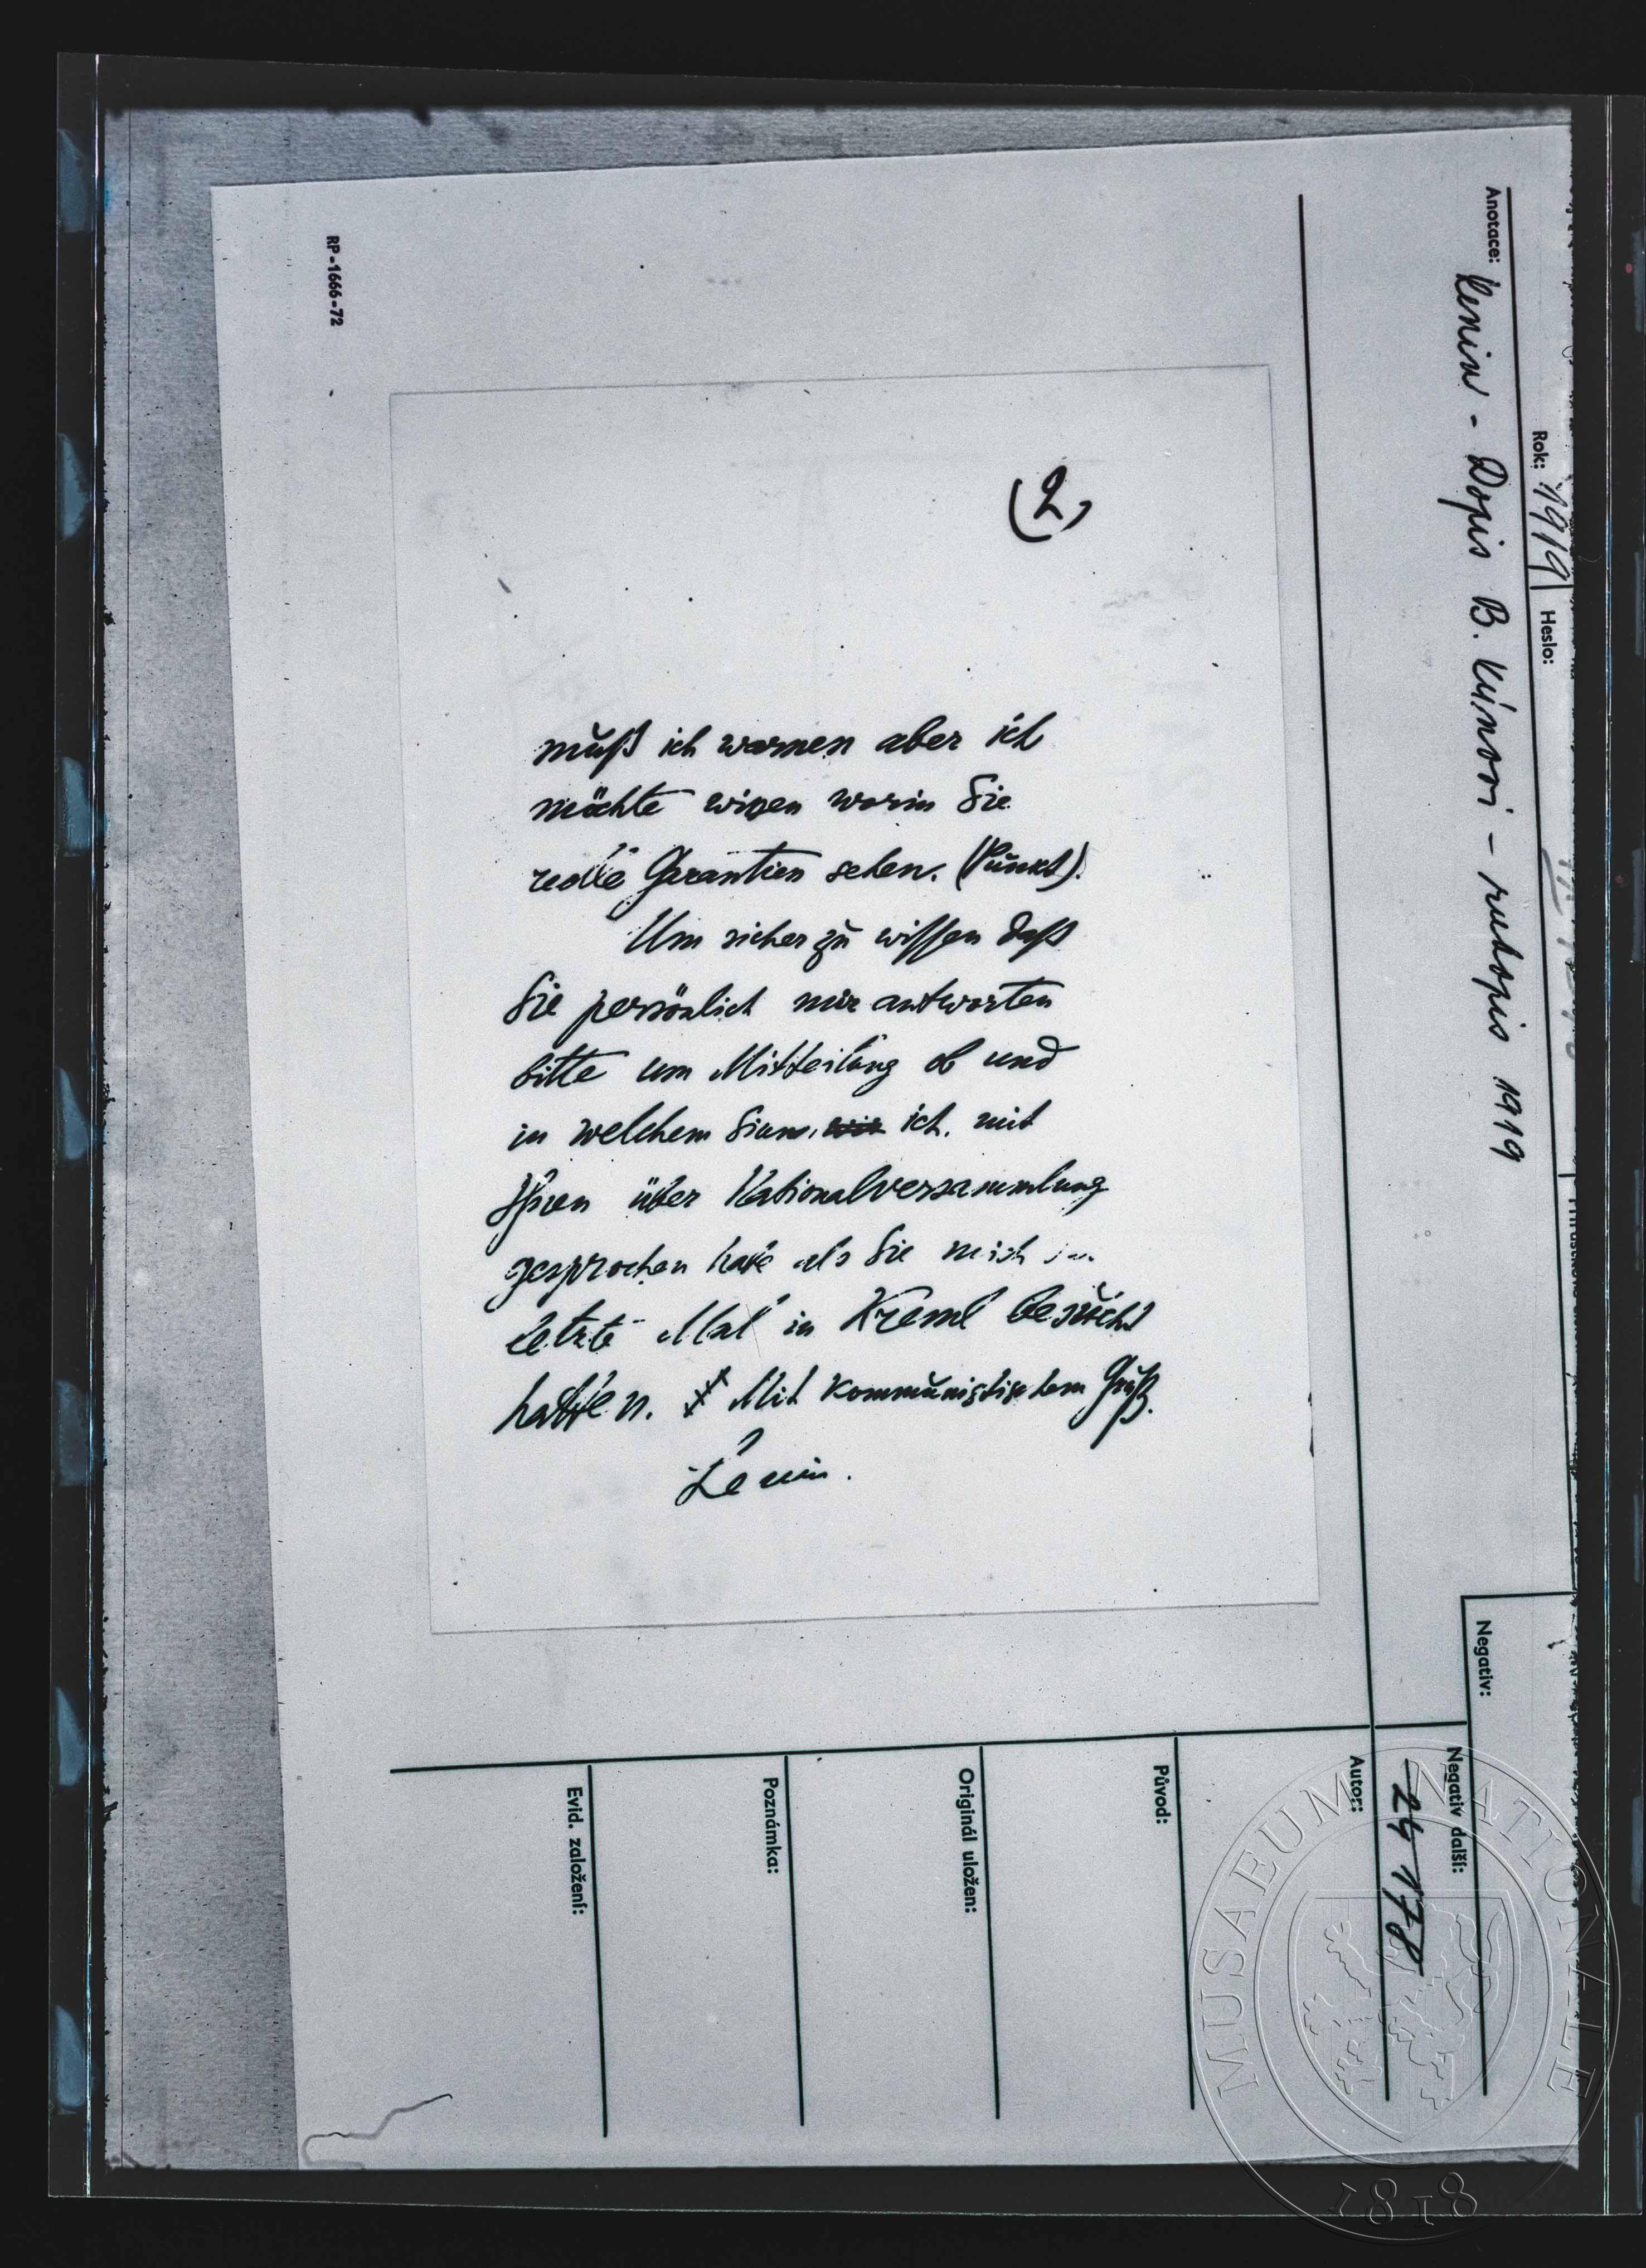 Rok: 1919
Heslo:
Anotace: Lenin - Dopis B. Kúnovi - rukopis 1919
RP-1666-72
(2)
muß ich warnen aber ich
möchte wissen worin Sie
reelle Garantien sehen. (Punkt).
Um sicher zu wissen daß
Sie persönlich mir antworten
bitte um Mitteilung ob und
in welchem Sinne, wir ich mit
Ihnen über Nationalversammlung
gesprochen habe als Sie mich
letzte Mal in Kreml besucht
hatten. Mit kommunistischem Gruß.
Lenin.
Negativ:
Negativ další:
24 178
Autor:
Původ:
Originál uložen:
Poznámka:
Evid. založení:
MUSAEUM NATIONALE
1818